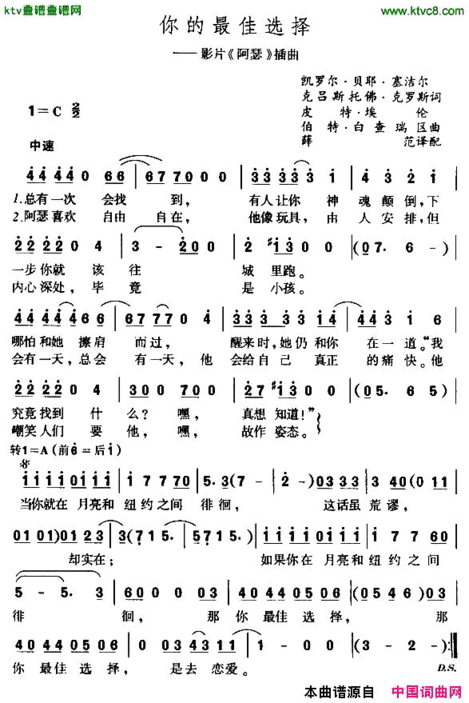 ktv查谱查谱网
www.ktvc8.com
你的最佳选择
——影片《阿瑟》插曲
凯罗尔·贝耶·塞洁尔
克吕斯托佛·克罗斯词
1=C 2/2
皮特·埃伦
伯特·白查瑞区曲
中速
薛范译配
44 44 40 60 | 6 77 000 | 33 33 33 1 | 4 3 2 1
1.总有一次 会找到, 有人让你 神魂颠倒,下
2.阿瑟喜欢 自由自在, 他像玩具,由人安排,但
22 22 20 4 | 3 - 200 | 2 #1 300 | (07. 6 -)
一步你就 该往 城里跑。
内心深处,毕竟 是小孩。
44 44 46 6 | 6 77 77 04 | 33 33 3 3 1 | 4 3 2 1
哪怕和她 擦肩而过, 醒来时,她仍和你 在一道。“我
会有一天,总会有一天,他 会给自己 真正的痛快。他
22 22 20 4 | 300 700 | 2 7 #1 300 | (05. 6 5)
究竟找到 什么?嘿, 真想知道!”
嘲笑人们 要他,嘿, 故作姿态。
转1=A(前6=后1)
111110111 | 17770 | 5.3(7-) | 5333 | 340(011)
当你就在月亮和纽约之间徘徊, 这话虽荒谬,
010 1)023 | 3(715. | 5715.) | 011 0111 | 17760
却实在; 如果你在月亮和纽约之间
5 - 5. 3 | 60003 | 40 44 05 06 | 5003
徘徊, 那你最佳选择,那
40 44 05 06 | 50 - 03 | 4 4 3 11 | 1 - 00 | (3 - 2 -):||
你最佳选择, 是去恋爱。
D.S.
本曲谱源自 中国词曲网